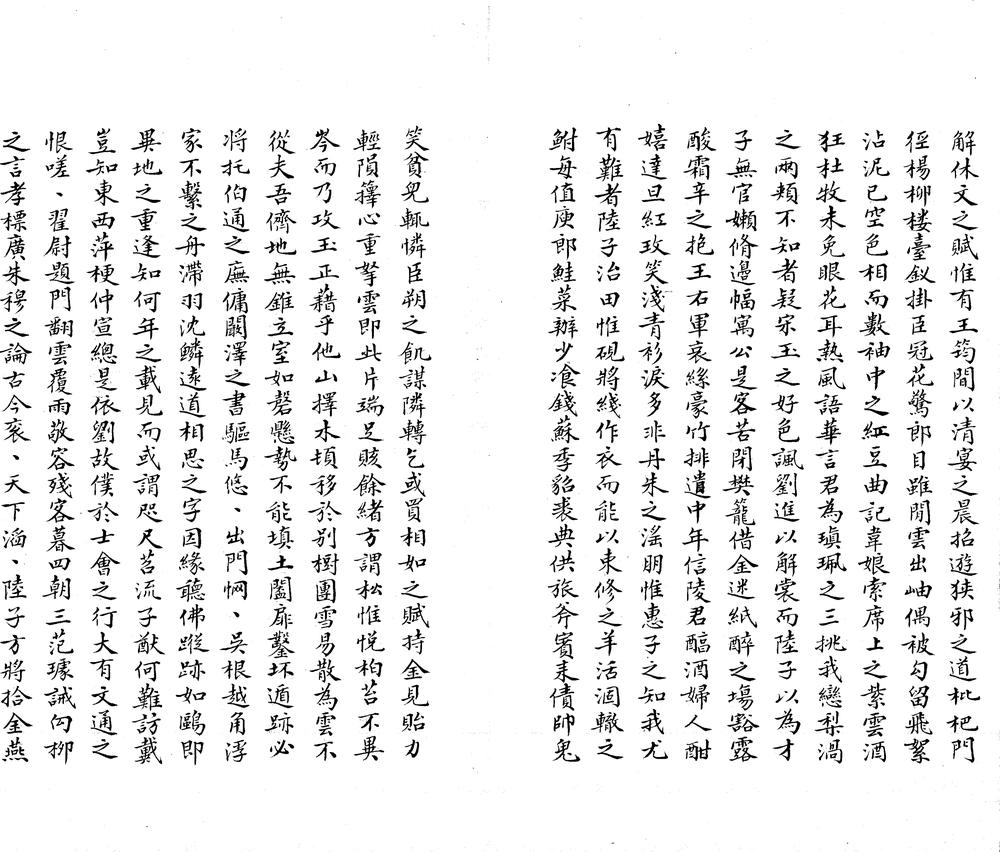 解休文之賦惟有王筠間以清宴之晨招遊狹邪之道枇杷門
徑楊柳楼臺釵掛臣冠花驚郎目雖閒雲出岫偶被勾留飛絮
沾泥已空色相而數袖中之紅豆曲記韋娘索席上之紫雲酒
狂杜牧未免眼花耳熱風語華言君為瑱珮之三挑我戀梨渦
之兩頰不知者疑宋玉之好色諷劉進以解裳而陸子以為才
子無官嬾脩邊幅寓公是客苦閉樊籠借金迷紙醉之塲豁露
酸霜辛之抱王右軍哀絲豪竹排遣中年信陵君醖酒婦人酣
嬉達旦紅玫笑淺青衫淚多非丹朱之滛朋惟惠子之知我尤
有難者陸子治田惟硯將綫作衣而能以束修之羊活涸轍之
鮒每值庾郎鮭菜辦少飡錢蘇季貂裘典供旅斧賓耒債帥鬼
笑貧兒輒憐臣朔之飢謀隣轉乞或買相如之賦持金見貽力
輕隕籜心重拏雲即此片端足賅餘緒方謂松惟悅柏苔不異
岑而乃攻玉正藉乎他山擇木頃移於别樹團雪易散為雲不
從夫吾儕地無錐立室如磬懸勢不能填土闔扉鑿坏遁跡必
将托伯通之廡傭闞澤之書驅馬悠、出門惘、吳根越角浮
家不繫之舟滯羽沈鱗遠道相思之字因緣聽佛蹤跡如鷗即
異地之重逢知何年之載見而或謂咫尺苕流子猷何難訪戴
豈知東西萍梗仲宣總是依劉故僕於士會之行大有文通之
恨嗟、翟尉題門翻雲覆雨敬客殘客暮四朝三范璩誡勾栁
之言孝標廣朱穆之論古今衮、天下滔、陸子方將拾金燕